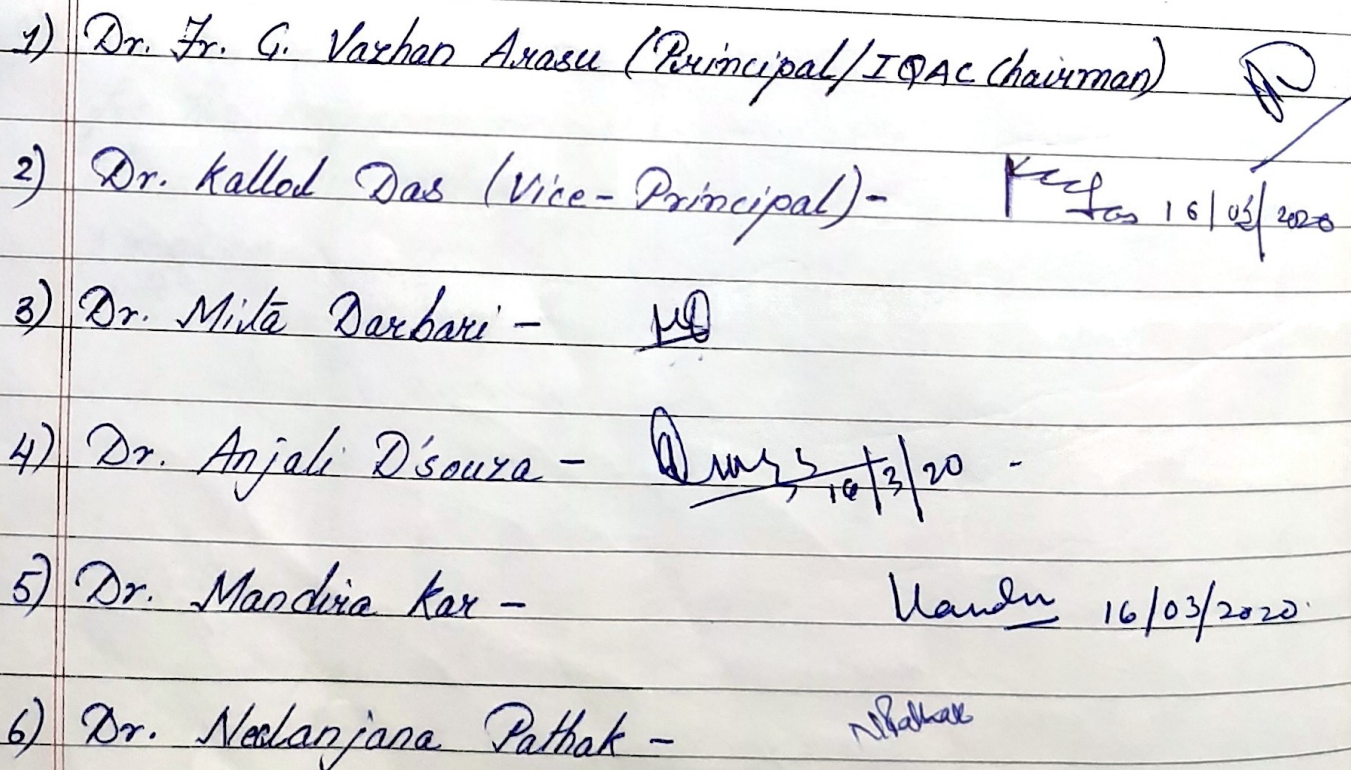 1) Dr. Fr. G. Vazhan Arasu (Principal/IQAC Chairman)
2) Dr. Kallol Das (Vice-Principal)- 16/03/2020
3) Dr. Mita Darbari -
4) Dr. Anjali D'souza - 16/3/20 -
5) Dr. Mandira Kar - 16/03/2020
6) Dr. Neelanjana Pathak - NPathak